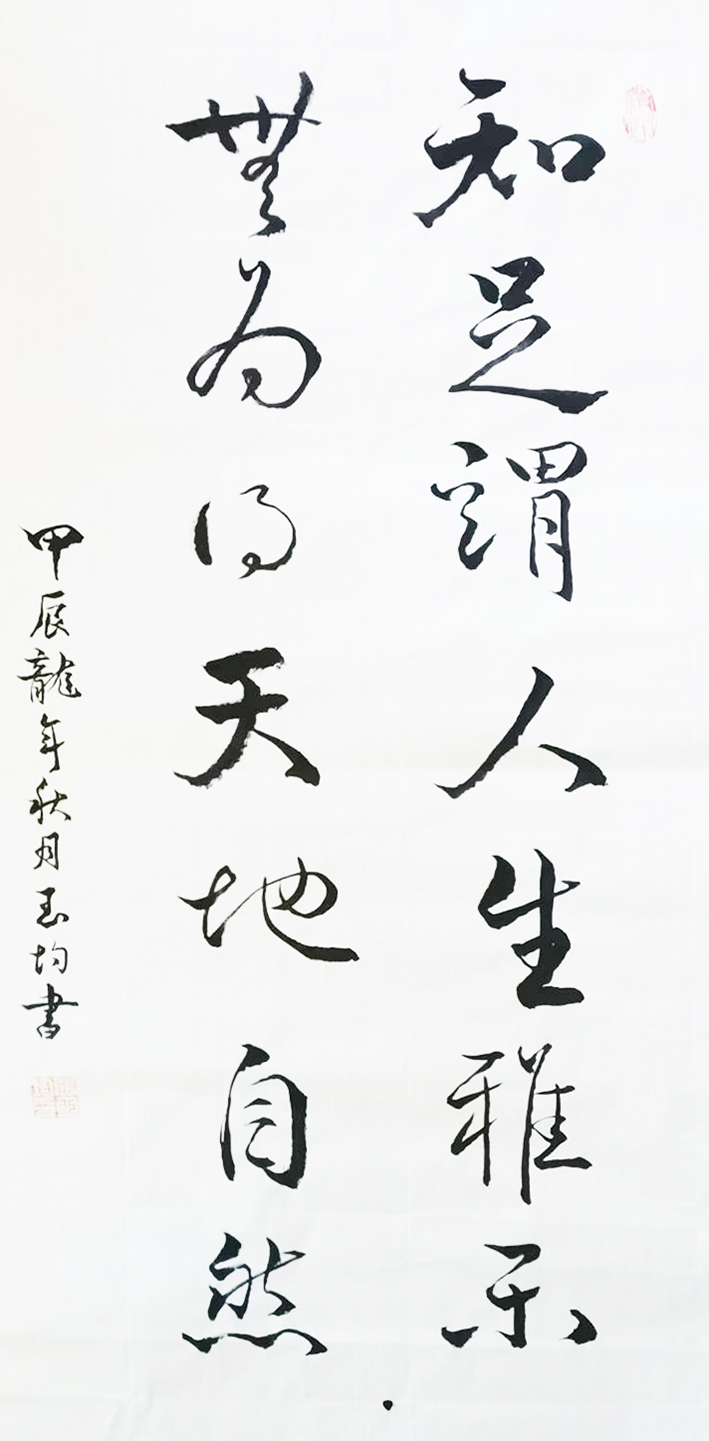 知足谓人生雅乐
無为得天地自然
甲辰龍年秋月玉均書